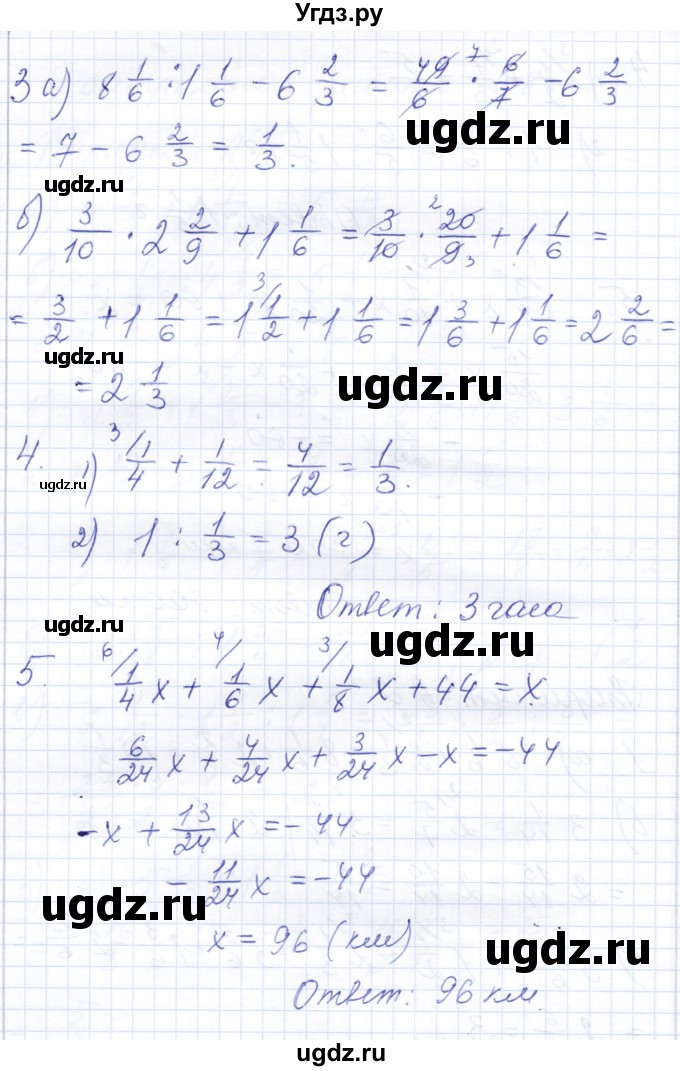 Угдз.ру
3 а) 8 1/6 : 1 1/6 − 6 2/3 = 49/6 · 6/7 − 6 2/3 7
= 7 − 6 2/3 = 1/3.
ugdz.ru
ugdz.ru
б) 3/10 · 2 2/9 + 1 1/6 = 3/10 · 20/9 + 1 1/6 = 2 3
= 3/2 + 1 1/6 = 1 1/2 + 1 1/6 = 1 3/6 + 1 1/6 = 2 2/6 = 3/
ugdz.ru
ugdz.ru
= 2 1/3
4. 1) 3/ 1/4 + 1/12 = 4/12 = 1/3.
ugdz.ru
2) 1 : 1/3 = 3 (г)
Ответ: 3 часа
ugdz.ru
ugdz.ru
5. 6/ 1/4 x + 4/ 1/6 x + 3/ 1/8 x + 44 = x
6/24 x + 4/24 x + 3/24 x − x = −44
− x + 13/24 x = − 44
− 11/24 x = −44
ugdz.ru
x = 96 (км)
ugdz.ru
Ответ: 96 км.
ugdz.ru